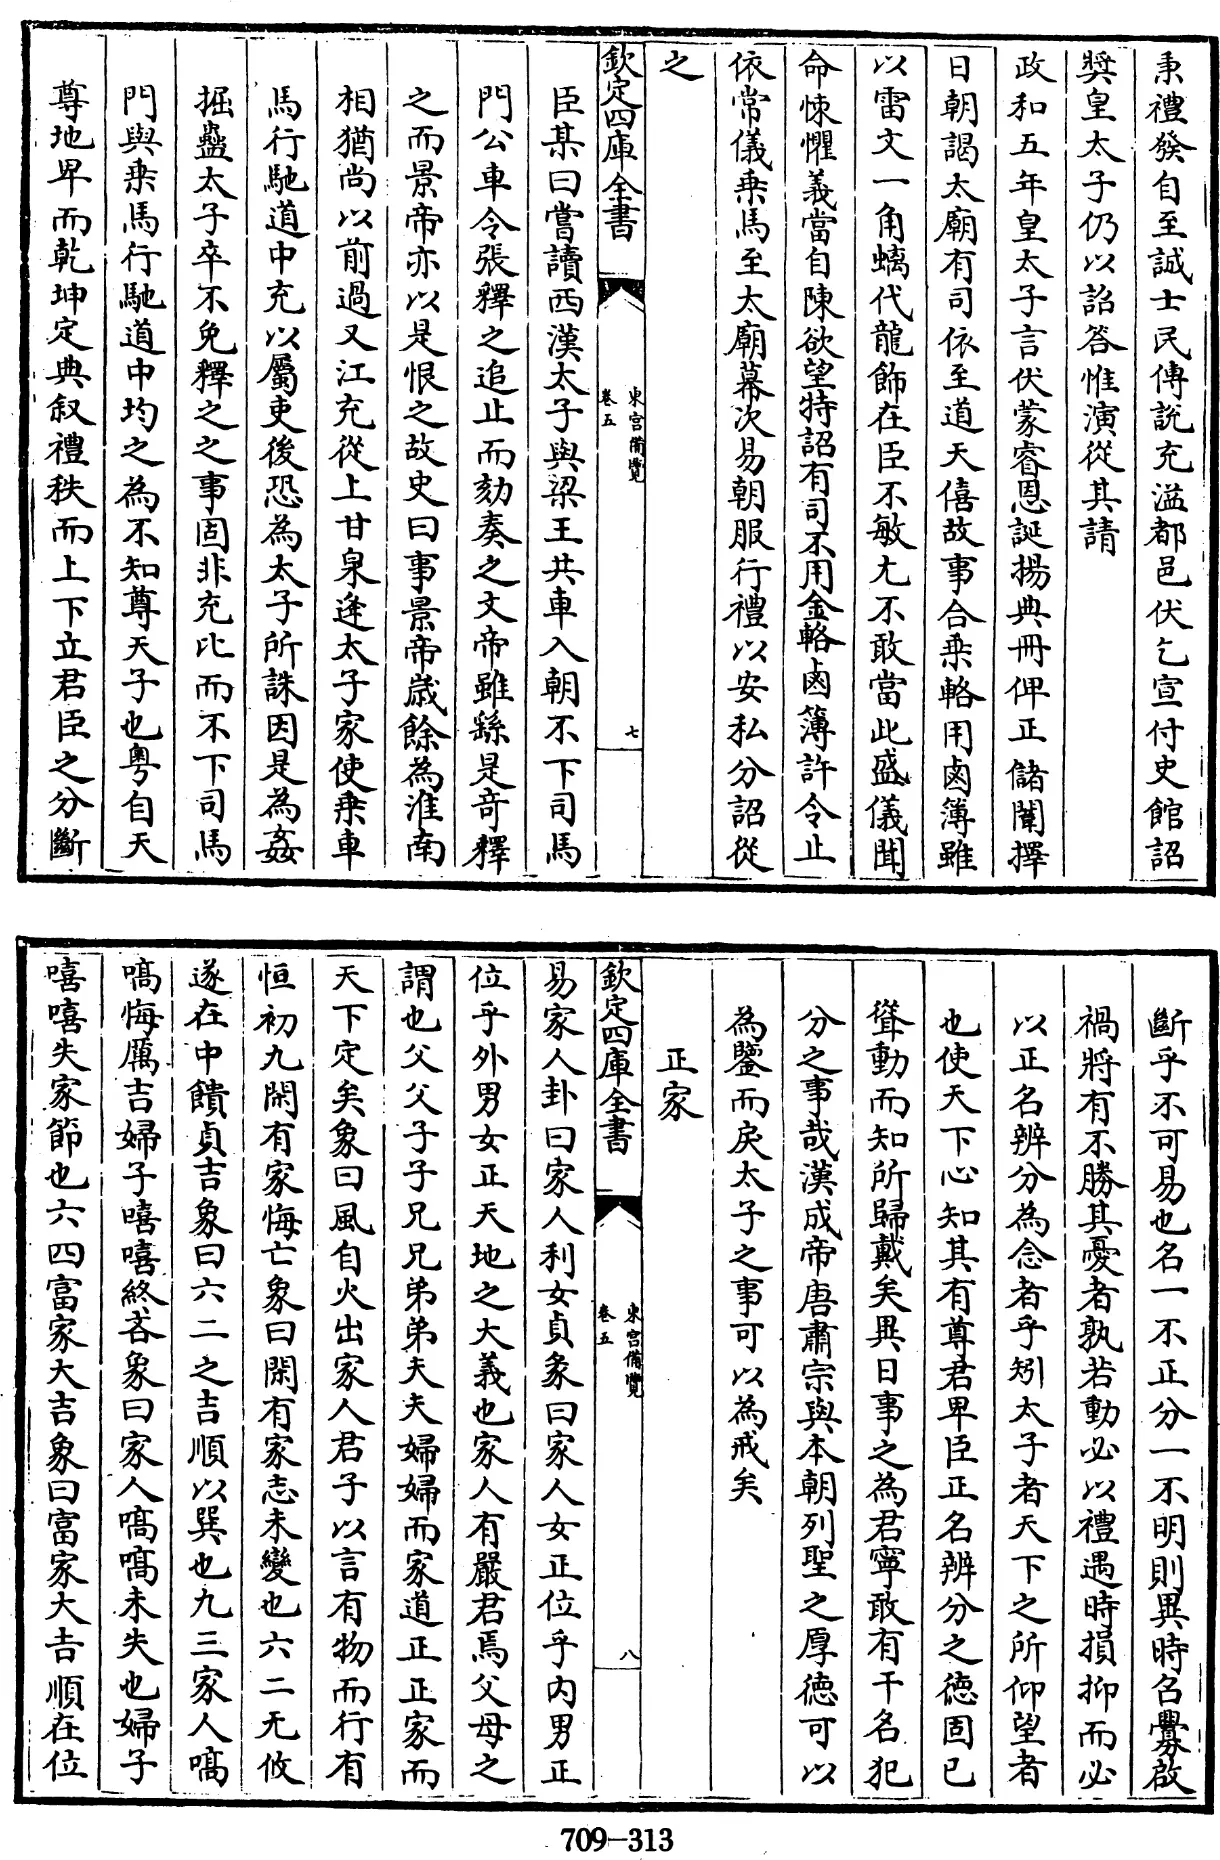 秉禮發自至誠士民傳説充溢都邑伏乞宣付史館詔
奬皇太子仍以詔答惟演從其請
政和五年皇太子言伏蒙睿恩誕揚典冊俾正儲闈擇
日朝謁太廟有司依至道天僖故事合乗輅用鹵簿雖
以雷文一角螭代龍飾在臣不敏尤不敢當此盛儀聞
命悚懼義當自陳欲望特詔有司不用金輅鹵簿許令止
依常儀乗馬至太廟幕次易朝服行禮以安私分詔從
之
欽定四庫全書
東宮備覽
卷五
七
臣某曰嘗讀西漢太子與梁王共車入朝不下司馬
門公車令張釋之追止而劾奏之文帝雖繇是竒釋
之而景帝亦以是恨之故史曰事景帝歲餘為淮南
相猶尚以前過又江充從上甘泉逢太子家使乗車
馬行馳道中充以屬吏後恐為太子所誅因是為姦
掘蠱太子卒不免釋之之事固非充比而不下司馬
門與乗馬行馳道中均之為不知尊天子也粤自天
尊地卑而乾坤定典叙禮秩而上下立君臣之分斷
斷乎不可易也名一不正分一不明則異時召釁啟
禍將有不勝其憂者孰若動必以禮遇時損抑而必
以正名辨分為念者乎矧太子者天下之所仰望者
也使天下心知其有尊君卑臣正名辨分之徳固已
聳動而知所歸戴矣異日事之為君寧敢有干名犯
分之事哉漢成帝唐肅宗與本朝列聖之厚徳可以
為鑒而戾太子之事可以為戒矣
正家
欽定四庫全書
東宮備覽
卷五
八
易家人卦曰家人利女貞彖曰家人女正位乎内男正
位乎外男女正天地之大義也家人有嚴君焉父母之
謂也父父子子兄兄弟弟夫夫婦婦而家道正正家而
天下定矣象曰風自火出家人君子以言有物而行有
恒初九閑有家悔亡象曰閑有家志未變也六二无攸
遂在中饋貞吉象曰六二之吉順以巽也九三家人嗃
嗃悔厲吉婦子嘻嘻終吝象曰家人嗃嗃未失也婦子
嘻嘻失家節也六四富家大吉象曰富家大吉順在位
709-313